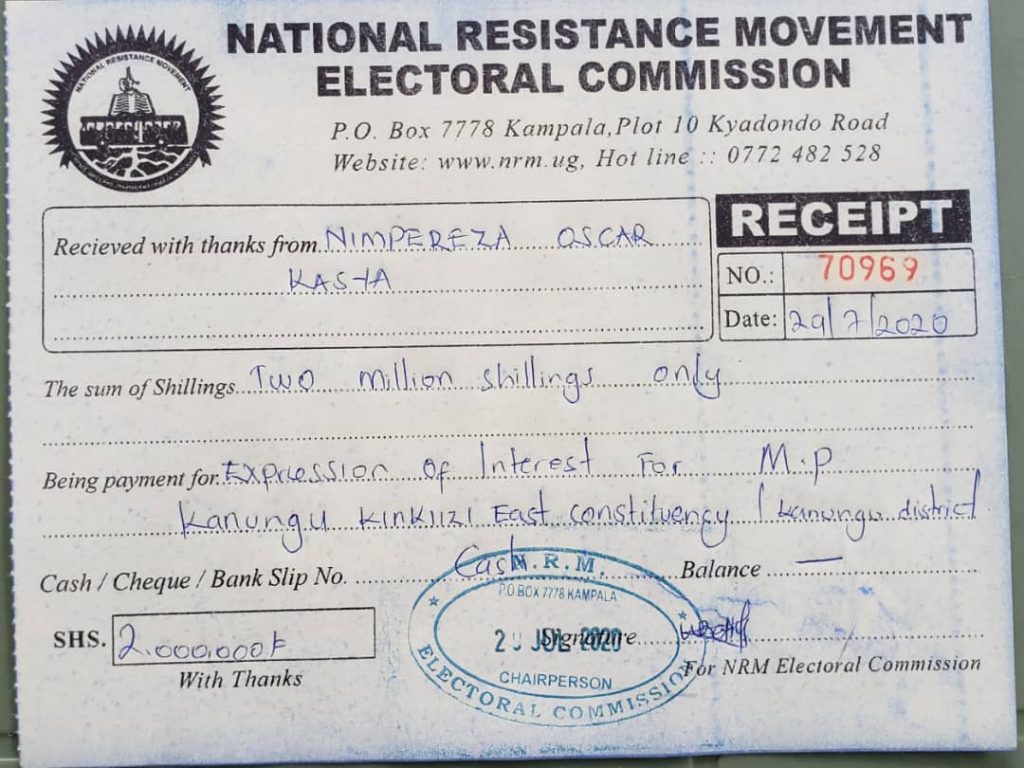 NATIONAL RESISTANCE MOVEMENT
NATIONAL RESISTANCE MOVEMENT
ELECTORAL COMMISSION
P.O. Box 7778 Kampala,Plot 10 Kyadondo Road
Website: www.nrm.ug, Hot line :: 0772 482 528
RECEIPT
Recieved with thanks from NIMPEREZA OSCAR
KASTA
NO.: 70969
Date: 29/7/2020
The sum of Shillings Two million shillings only
Being payment for Expression of Interest For M.P
Kanungu Kinkiizi East constituency / kanungu district
Cash / Cheque / Bank Slip No. Cash Balance —
SHS. 2.000.000/=
With Thanks
Signature
For NRM Electoral Commission
N.R.M.
P.O BOX 7778 KAMPALA
29 JUL 2020
CHAIRPERSON
ELECTORAL COMMISSION